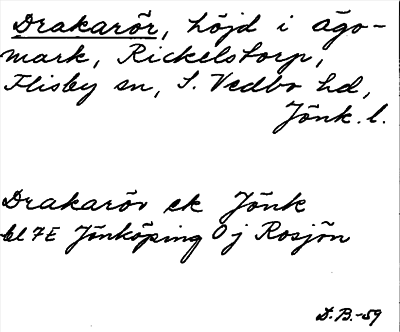 Drakarör, höjd i ägo-
mark, Rickelstorp,
Flisby sn, S. Vedbo hd,
Jönk. l.
Drakarör ek Jönk
bl 7E Jönköping 0j Rosjön
D. B. -59